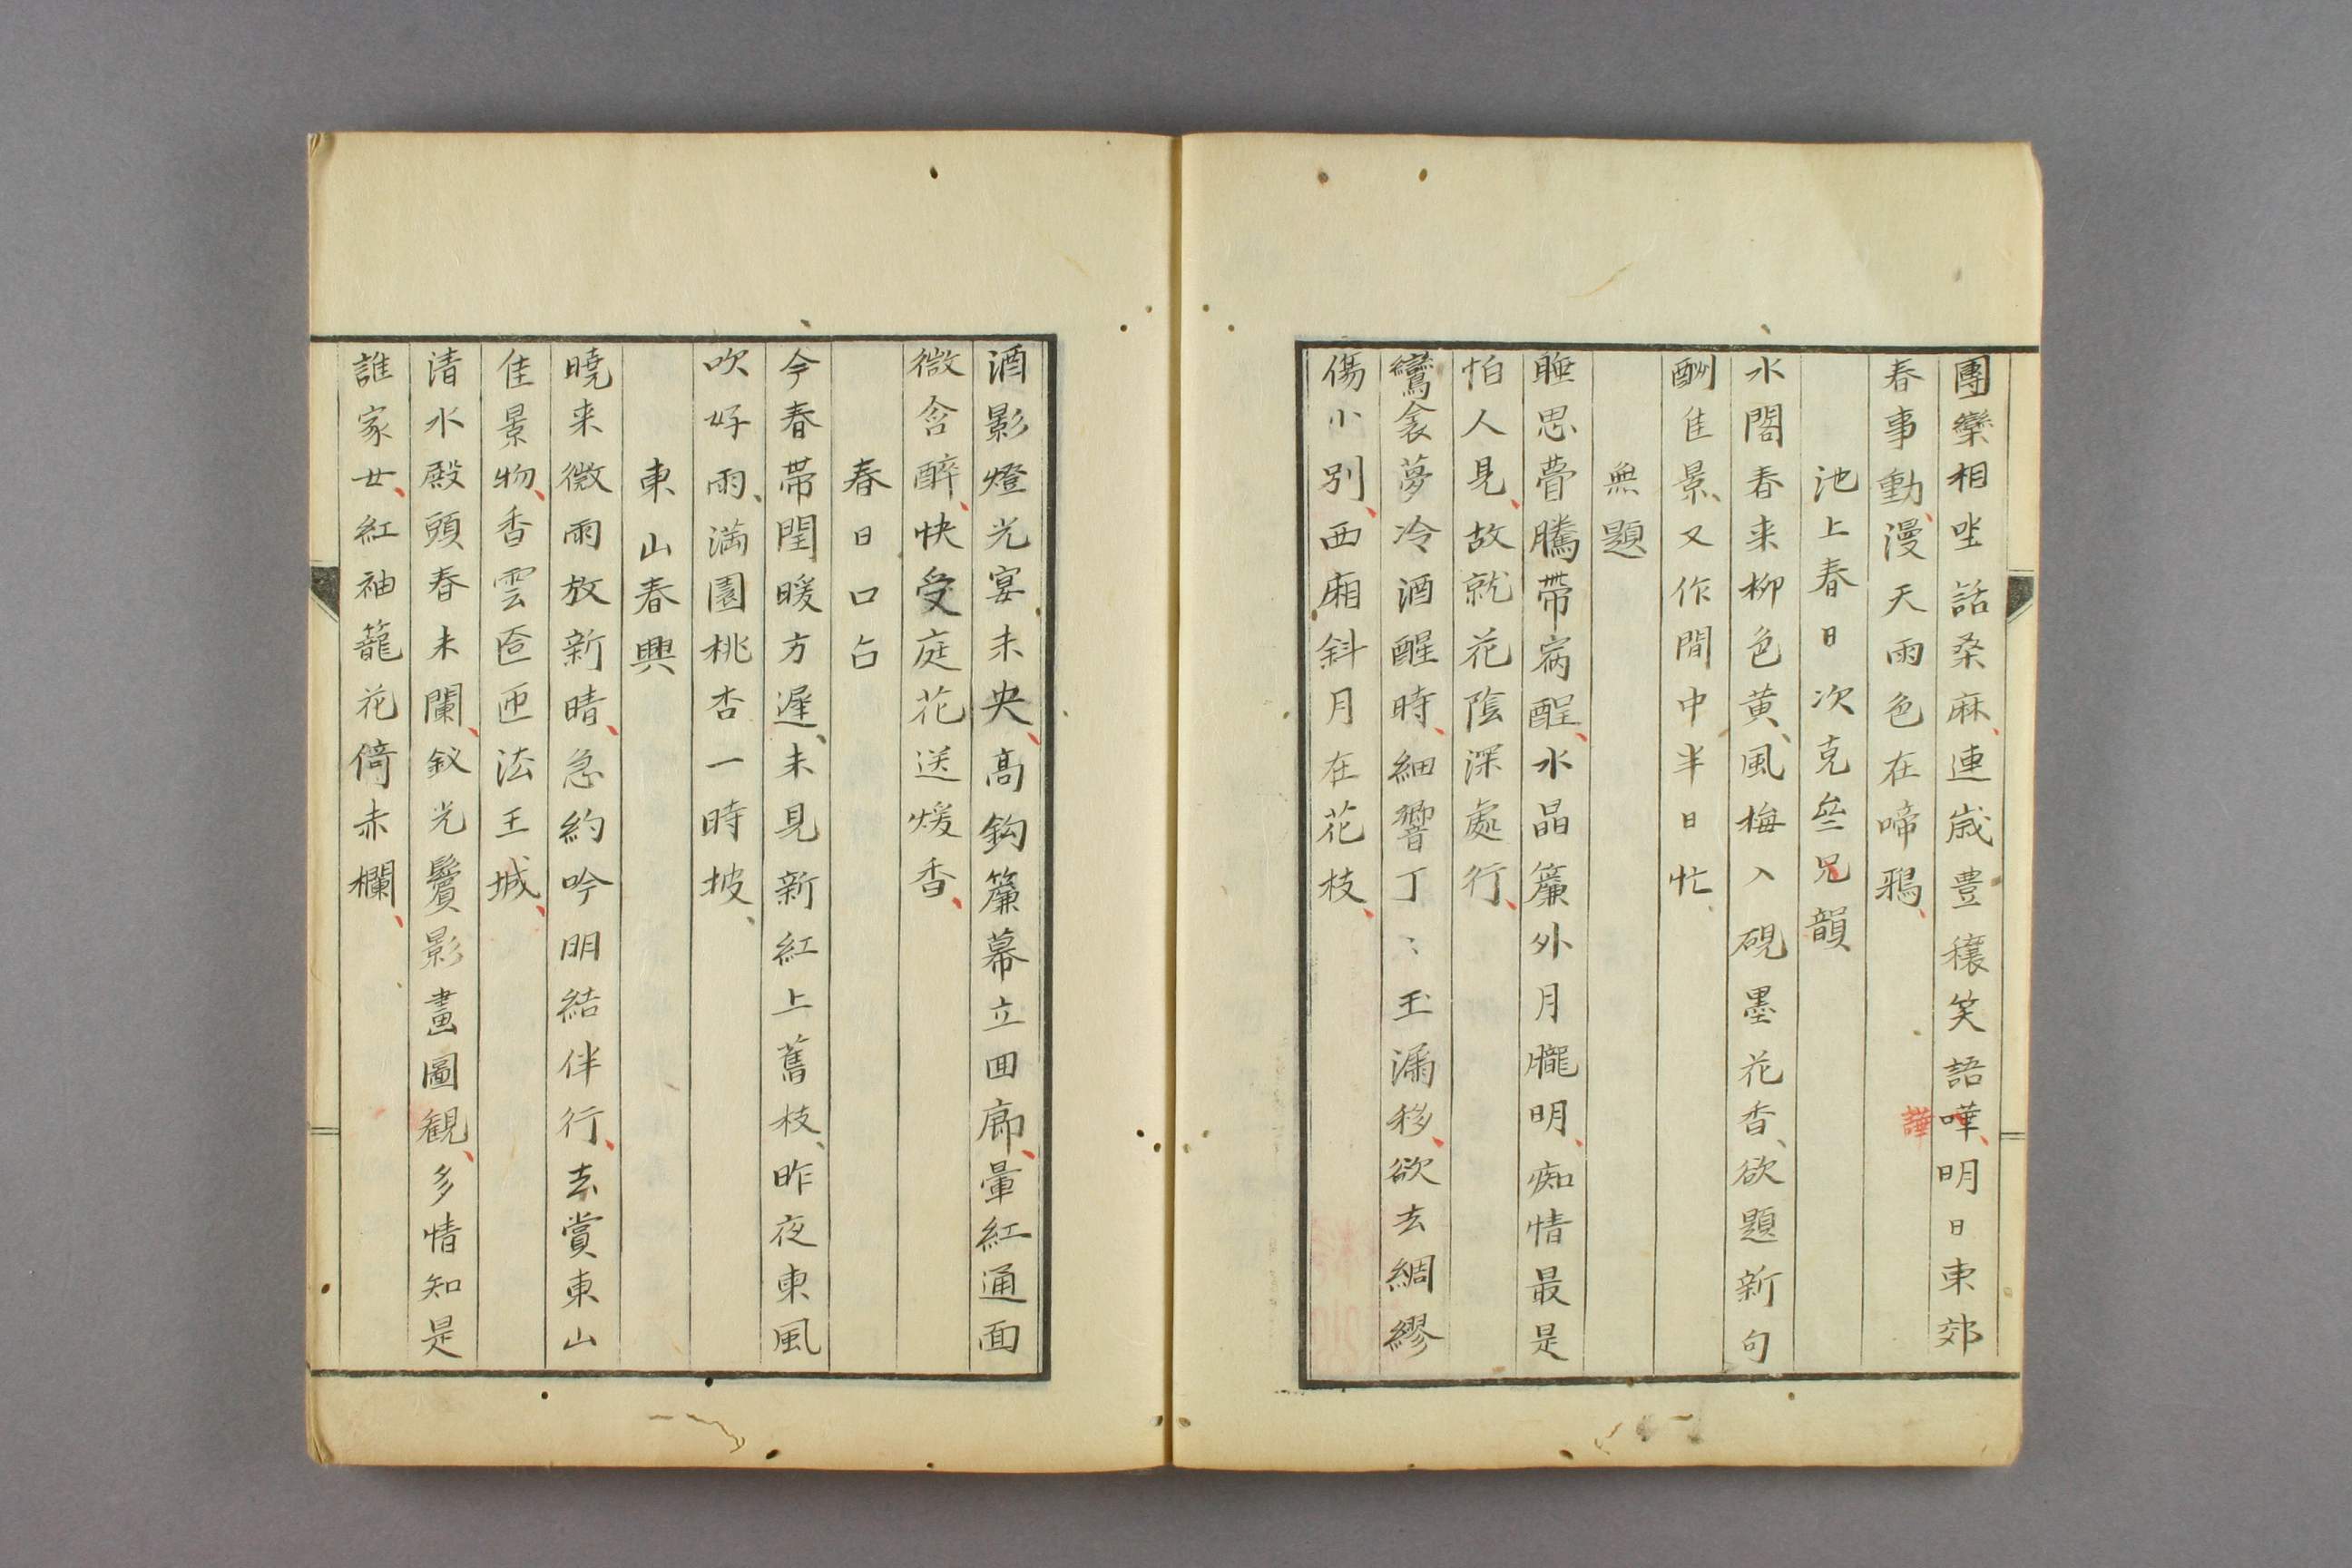 團欒相坐話桑麻、連歳豊穰笑語嘩、明日東郊
譁
春事動、漫天雨色在啼鴉、
池上春日次克壘兄韻
水閣春来柳色黄、風梅入硯墨花香、欲題新句
酬佳景、又作間中半日忙、
無題
睡思瞢騰帶病酲、水晶簾外月朧明、痴情最是
怕人見、故就花陰深處行、
鸞衾夢冷酒醒時、細響丁〻玉漏移、欲去綢繆
傷小別、西廂斜月在花枝、
酒影燈光宴未央、高鈎簾幕立回廊、暈紅通面
微含醉、快受庭花送煖香、
春日口占
今春帯閏暖方遅、未見新紅上舊枝、昨夜東風
吹好雨、満園桃杏一時披、
東山春興
曉来微雨放新晴、急約吟朋結伴行、去賞東山
佳景物、香雲匼匝法王城、
清水殿頭春未闌、釵光鬢影畫圖観、多情知是
誰家女、紅袖籠花倚赤欄、